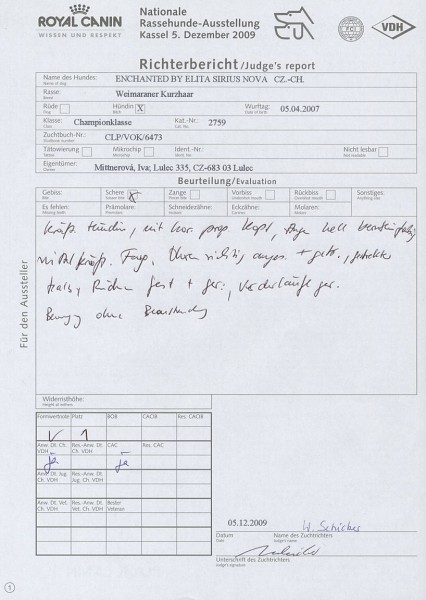 ROYAL CANIN
WISSEN UND RESPEKT
Nationale
Rassehunde-Ausstellung
Kassel 5. Dezember 2009
FCI
VDH
Richterbericht/Judge's report
Name des Hundes: ENCHANTED BY ELITA SIRIUS NOVA CZ.-CH.
Name of dog
Rasse: Weimaraner Kurzhaar
Breed
Rüde Hündin X Wurftag: 05.04.2007
Dog Bitch Date of birth
Klasse: Championklasse Kat.-Nr.: 2759
Class Cat. No.
Zuchtbuch-Nr.: CLP/VOK/6473
Studbook number
Tätowierung Mikrochip Ident.-Nr.: Nicht lesbar
Tattoo Microchip Ident. Number Not readable
Eigentümer: Mittnerová, Iva; Lulec 335, CZ-683 03 Lulec
Owner
Beurteilung/Evaluation
Gebiss: Schere X Zange Vorbiss Rückbiss Sonstiges:
Bite Scissor bite Pincer bite Undershot mouth Overshot mouth Anything else
Es fehlen: Prämolare: Schneidezähne: Eckzähne: Molaren:
Missing teeth Premolars Incisors Canines Molars
kräft. Hündin, mit kor. prop. Kopf, Auge hell
mittelkräft. Fang, Ohren richtig anges. + getr.,
Hals, Rücken fest + ger., Vorderläufe ger.
Bewegg ohne Beanstandg
Für den Aussteller
Widerristhöhe:
Height at withers
Formwertnote Platz BOB CACIB Res. CACIB
V 1
Anw. Dt. Ch. VDH Res.-Anw. Dt. Ch. VDH CAC Res. CAC
ja ja
Anw. Dt. Jug. Ch. VDH Res.-Anw. Dt. Jug. Ch. VDH
Anw. Dt. Vet. Ch. VDH Res.-Anw. Dt. Vet. Ch. VDH Bester Veteran
05.12.2009
Datum Name des Zuchtrichters
Date Judge's name
Unterschrift des Zuchtrichters
Judge's signature
1